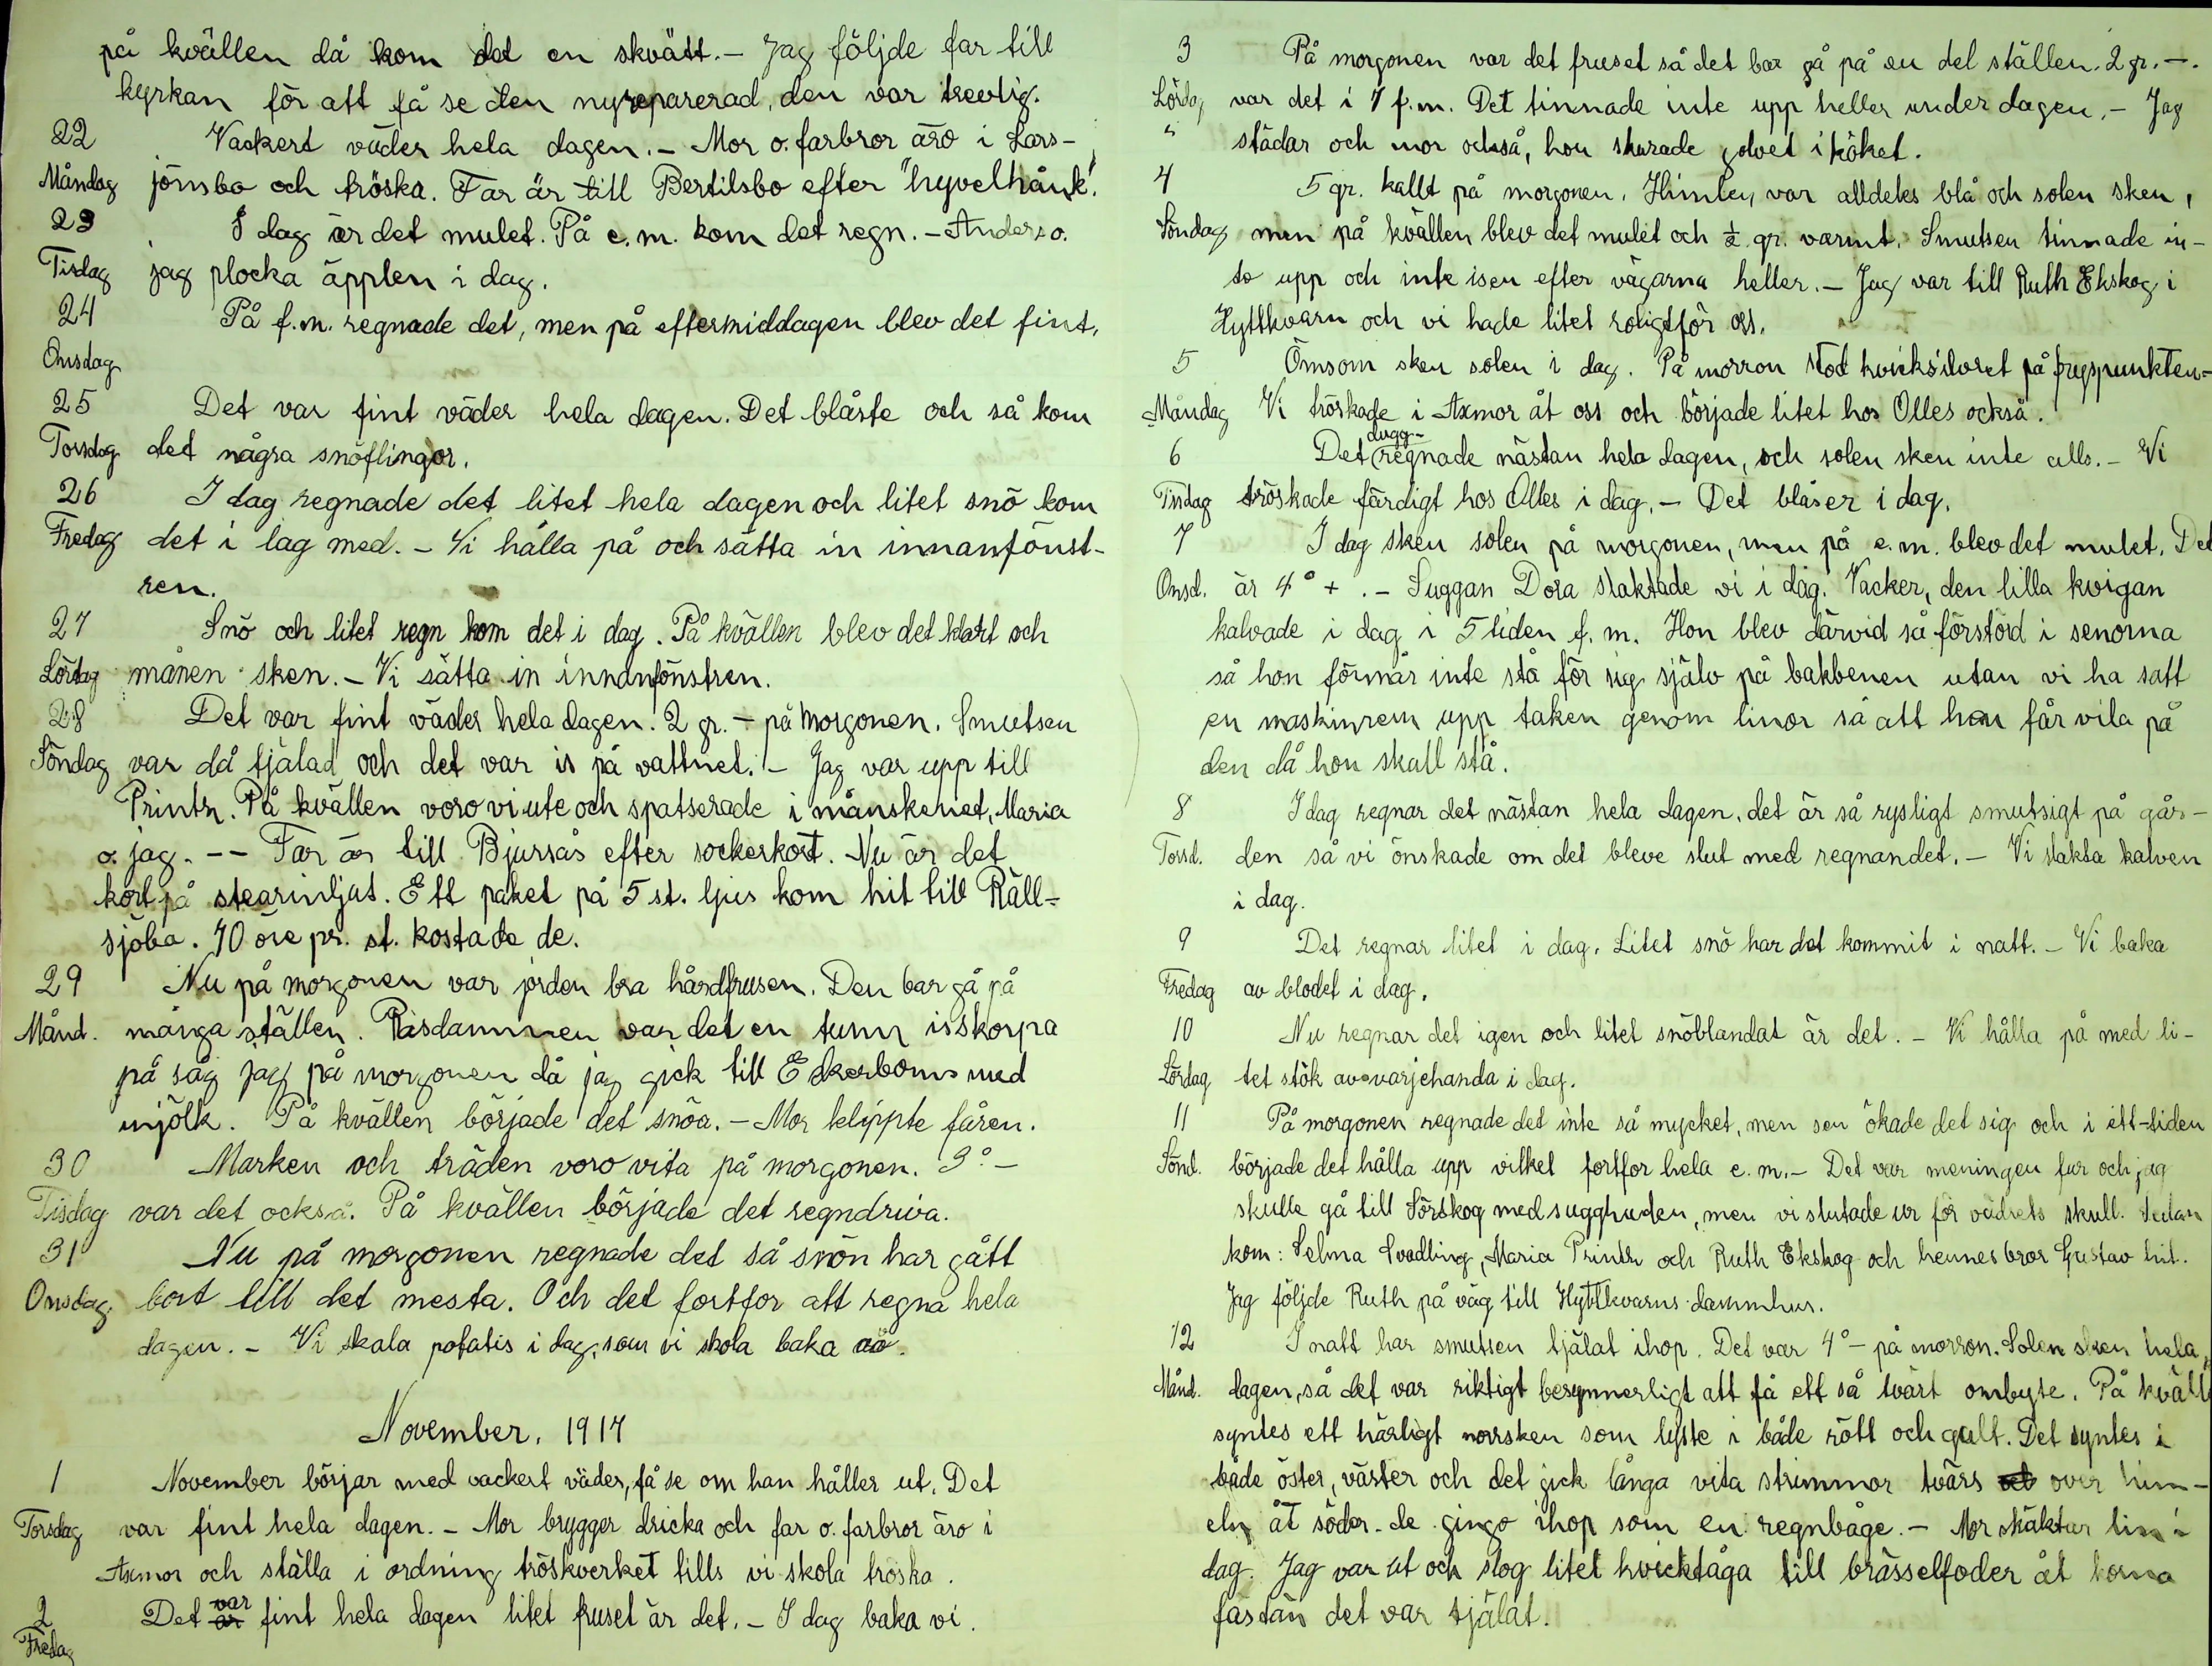 på kvällen då kom det en skvätt. – Jag följde far till
kyrkan för att få se den nyreparerad, den var trevlig.
22 Vackert väder hela dagen. – Mor o. farbror äro i Lars-
Måndag jönsbo och tröska. Far är till Bertilsbo efter "hyvelhånk".
23 I dag är det mulet. På e.m. kom det regn. – Anders o.
Tisdag jag plocka äpplen i dag.
24 På f.m. regnade det, men på eftermiddagen blev det fint.
Onsdag
25 Det var fint väder hela dagen. Det blåste och så kom
Torsdag det några snöflingor.
26 I dag regnade det litet hela dagen och litet snö kom
Fredag det i lag med. – Vi hålla på och sätta in innanfönst-
ren.
27 Snö och litet regn kom det i dag. På kvällen blev det klart och
Lördag månen sken. – Vi sätta in innanfönstren.
28 Det var fint väder hela dagen. 2 gr. – på morgonen. Smutsen
Söndag var då tjälad och det var is på vattnet. – Jag var upp till
Printz. På kvällen voro vi ute och spatserade i månskenet, Maria
o. jag. –– Far är till Bjursås efter sockerkort. Nu är det
kort på stearinljus. Ett paket på 5 st. ljus kom hit till Räll-
sjöbo. 70 öre pr. st. kostade de.
29 Nu på morgonen var jorden bra hårdfrusen. Den bar gå på
Månd. många ställen. Påsdammen var det en tunn isskorpa
på såg jag på morgonen då jag gick till Ekerboms med
mjölk. På kvällen började det snöa. – Mor klippte fåren.
30 Marken och träden voro vita på morgonen. 3° –
Tisdag var det också. På kvällen började det regndriva.
31 Nu på morgonen regnade det så snön har gått
Onsdag bort till det mesta. Och det fortfor att regna hela
dagen. – Vi skala potatis i dag, som vi skola baka av.
November, 1917
1 November börjar med vackert väder, få se om han håller ut. Det
Torsdag var fint hela dagen. – Mor brygger dricka och far o. farbror äro i
Axmor och ställa i ordning tröskverket tills vi skola tröska.
var
2 Det är fint hela dagen litet fruset är det. – I dag baka vi.
Fredag
3 På morgonen var det fruset så det bar gå på en del ställen. 2 gr. –.
Lördag var det i 7 f.m. Det tinnade inte upp heller under dagen. – Jag
" städar och mor också, hon skurade golvet i köket.
4 5 gr. kallt på morgonen. Himlen var alldeles blå och solen sken,
Söndag men på kvällen blev det mulet och ½ gr. varmt. Smutsen tinnade in-
te upp och inte isen efter vägarna heller. – Jag var till Ruth Ekskog i
Hyttkvarn och vi hade litet roligt för oss.
5 Ömsom sken solen i dag. På morron stod kvicksilvret på fryspunkten –
Måndag Vi tröskade i Axmor åt oss och började litet hos Olles också.
dugg-
6 Det regnade nästan hela dagen, och solen sken inte alls. – Vi
Tisdag tröskade färdigt hos Olles i dag. – Det blåser i dag.
7 I dag sken solen på morgonen, men på e.m. blev det mulet. Det
Onsd. är 4° + . – Suggan Dora slaktade vi i dag. Vacker, den lilla kvigan
kalvade i dag i 5 tiden f.m. Hon blev därvid så förstörd i senorna
så hon förmår inte stå för sig själv på bakbenen utan vi ha satt
en maskinrem upp i taken genom linor så att hon får vila på
den då hon skall stå.
8 I dag regnar det nästan hela dagen, det är så rysligt smutsigt på går-
Torsd. den så vi önskade om det bleve slut med regnandet. – Vi slakta kalven
i dag.
9 Det regnar litet i dag. Litet snö har det kommit i natt. – Vi baka
Fredag av blodet i dag.
10 Nu regnar det igen och litet snöblandat är det. – Vi hålla på med li-
Lördag tet stök av varjehanda i dag.
11 På morgonen regnade det inte så mycket, men sen ökade det sig och i ett-tiden
Sönd. började det hålla upp vilket fortfor hela e.m. – Det var meningen far och jag
skulle gå till Sörskog med sugghuden, men vi slutade ur för vädrets skull. Sedan
kom: Selma Svedling, Maria Printz och Ruth Ekskog och hennes bror Gustav hit.
Jag följde Ruth på väg till Hyttkvarns dammhus.
12 I natt har smutsen tjälat ihop. Det var 4° – på morron. Solen sken hela
Månd. dagen, så det var riktigt besynnerligt att få ett så tvärt ombyte. På kväll
syntes ett härligt norrsken som lyste i både rött och gult. Det syntes i
både öster, väster och det gick långa vita strimmor tvärs över him-
eln åt söder. de gingo ihop som en regnbåge. – Mor skäktar lin i
dag. Jag var ut och slog litet hvicktåga till brässelfoder åt korna
fastän det var tjälat.